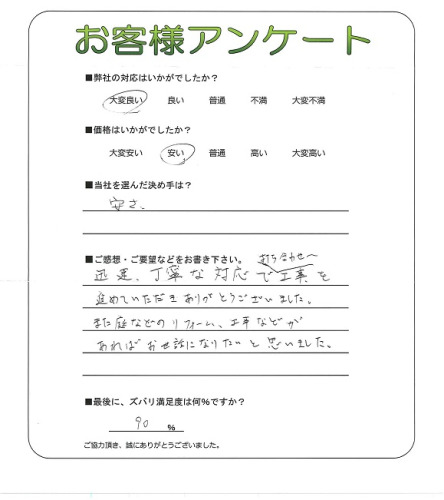 お客様アンケート
■弊社の対応はいかがでしたか?
大変良い 良い 普通 不満 大変不満
■価格はいかがでしたか?
大変安い 安い 普通 高い 大変高い
■当社を選んだ決め手は?
安さ、
■ご感想・ご要望などをお書き下さい。
打ち合わせ〜
迅速、丁寧な対応で工事を
進めていただきありがとうございました。
また庭などのリフォーム、工事などが
あればお世話になりたいと思いました。
■最後に、ズバリ満足度は何%ですか?
90 %
ご協力頂き、誠にありがとうございました。